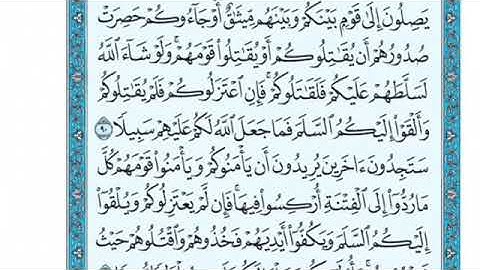 يَصِلُونَ إِلَىٰ قَوْمٍۭ بَيْنَكُمْ وَبَيْنَهُم مِّيثَٰقٌ أَوْ جَآءُوكُمْ حَصِرَتْ
صُدُورُهُمْ أَن يُقَٰتِلُوكُمْ أَوْ يُقَٰتِلُوا۟ قَوْمَهُمْ ۚ وَلَوْ شَآءَ ٱللَّهُ
لَسَلَّطَهُمْ عَلَيْكُمْ فَلَقَٰتَلُوكُمْ ۚ فَإِنِ ٱعْتَزَلُوكُمْ فَلَمْ يُقَٰتِلُوكُمْ
وَأَلْقَوْا۟ إِلَيْكُمُ ٱلسَّلَمَ فَمَا جَعَلَ ٱللَّهُ لَكُمْ عَلَيْهِمْ سَبِيلًا ٩٠
سَتَجِدُونَ ءَاخَرِينَ يُرِيدُونَ أَن يَأْمَنُوكُمْ وَيَأْمَنُوا۟ قَوْمَهُمْ كُلَّ
مَا رُدُّوٓا۟ إِلَى ٱلْفِتْنَةِ أُرْكِسُوا۟ فِيهَا ۚ فَإِن لَّمْ يَعْتَزِلُوكُمْ وَيُلْقُوٓا۟
إِلَيْكُمُ ٱلسَّلَمَ وَيَكُفُّوٓا۟ أَيْدِيَهُمْ فَخُذُوهُمْ وَٱقْتُلُوهُمْ حَيْثُ